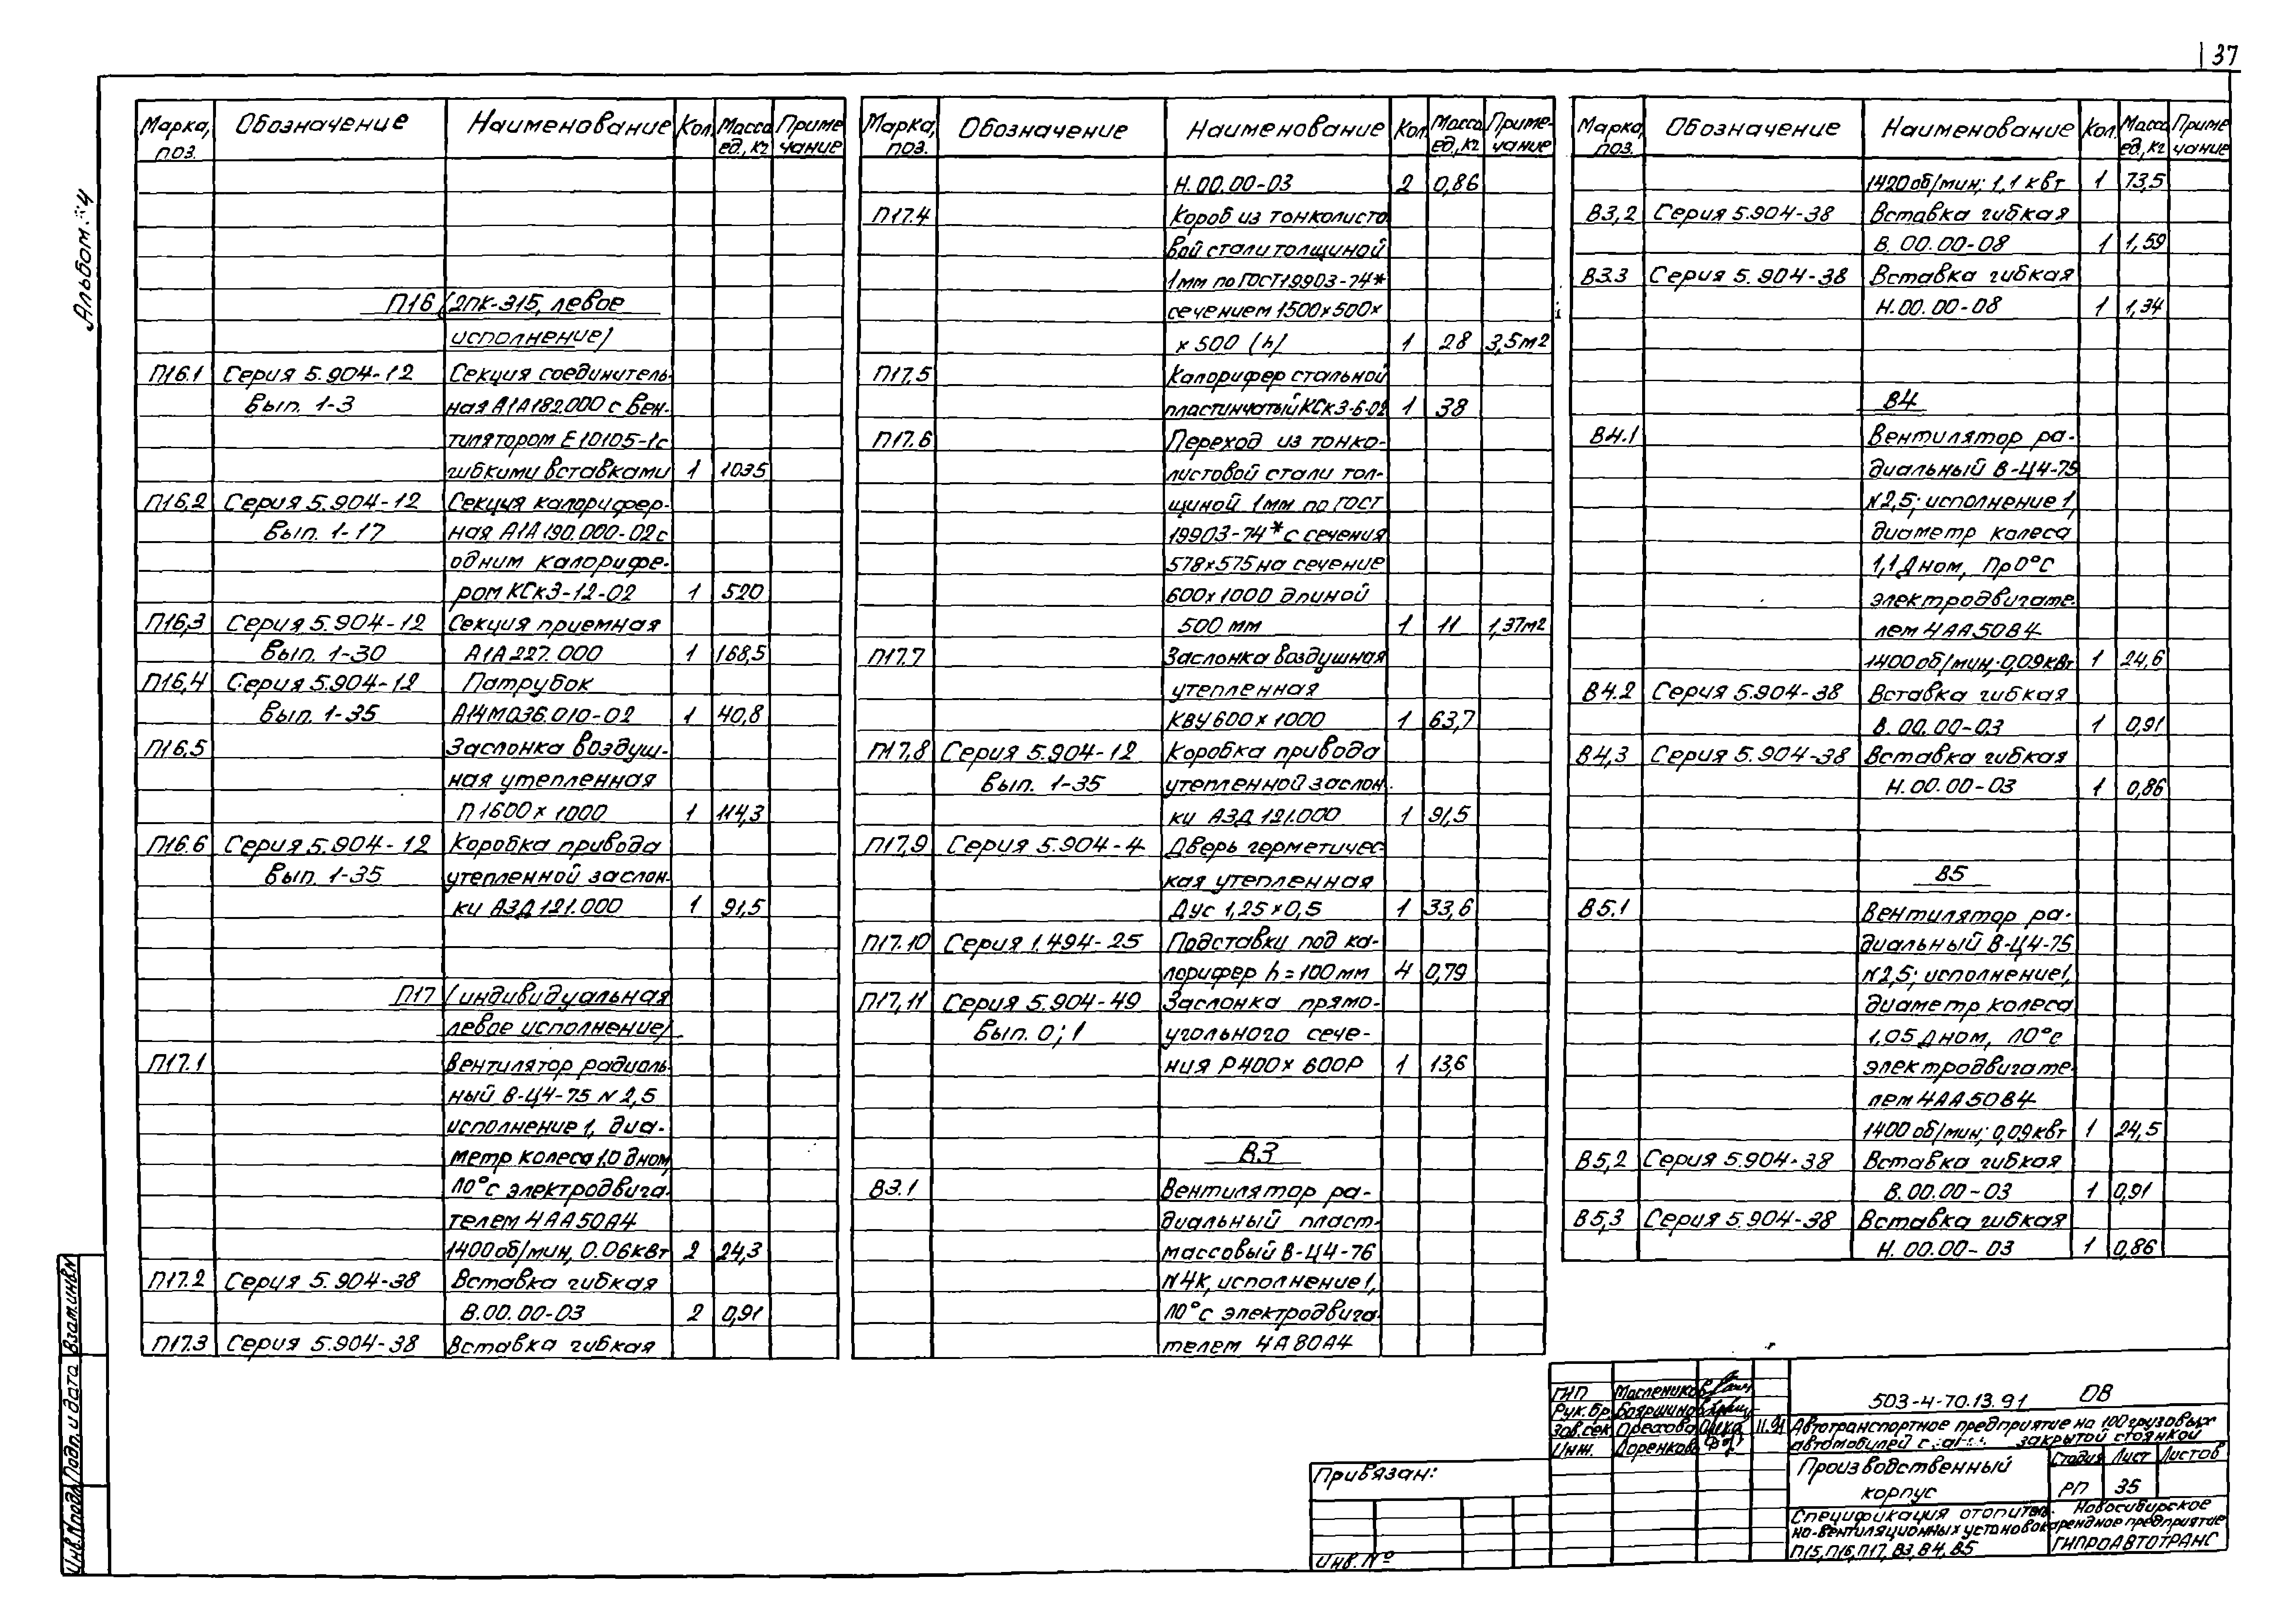 37
Альбом 4
Марка, поз. Обозначение Наименование Кол. Масса ед., кг Примечание
П16 (2ПК-315, левое
исполнение)
П16.1 Серия 5.904-12 Секция соединитель-
Вып. 1-3 ная А1А182.000 с вен-
тилятором Е10105-1с
гибкими вставками 1 1035
П16,2 Серия 5.904-12 Секция калорифер-
Вып. 1-17 ная А1А190.000-02 с
одним калорифе-
ром КСк3-12-02 1 520
П16,3 Серия 5.904-12 Секция приемная
Вып. 1-30 А1А227.000 1 168,5
П16,4 Серия 5.904-12 Патрубок
Вып. 1-35 А14М036.010-02 1 40,8
П16.5 Заслонка воздуш-
ная утепленная
П1600х1000 1 114,3
П16.6 Серия 5.904-12 Коробка привода
Вып. 1-35 утепленной заслон-
ки АЗД121.000 1 91,5
П17 (индивидуальная
левое исполнение)
П17.1 Вентилятор радиаль-
ный В-Ц4-75 N2,5
исполнение 1, диа-
метр колеса 1,0 Дном,
Л0°с электродвига-
телем 4АА50А4
1400 об/мин, 0.06 квт 2 24,3
П17.2 Серия 5.904-38 Вставка гибкая
В.00.00-03 2 0,91
П17.3 Серия 5.904-38 Вставка гибкая
Марка, поз. Обозначение Наименование Кол. Масса ед., кг Примечание
Н.00.00-03 2 0,86
П17.4 Короб из тонколисто
вой стали толщиной
1мм по ГОСТ19903-74*
сечением 1500х500х
х 500 (h) 1 28 3,5м2
П17.5 Калорифер стальной
пластинчатый КСк3-6-02 1 38
П17.6 Переход из тонко-
листовой стали тол-
щиной 1мм по ГОСТ
19903-74* с сечения
578х575 на сечение
600х1000 длиной
500 мм 1 11 1,37м2
П17.7 Заслонка воздушная
утепленная
КВУ600х1000 1 63,7
П17,8 Серия 5.904-12 Коробка привода
Вып. 1-35 утепленной заслон
ки АЗД121.000 1 91,5
П17,9 Серия 5.904-4 Дверь герметичес-
кая утепленная
Дус 1,25х0,5 1 33,6
П17.10 Серия 1.494-25 Подставки под ка-
лорифер h=100мм 4 0,79
П17,11 Серия 5.904-49 Заслонка прямо-
Вып. 0;1 угольного сече-
ния Р400х600Р 1 13,6
В3
В3.1 Вентилятор ра-
диальный пласт-
массовый В-Ц4-76
N4К, исполнение 1,
Л0°с электродвига-
телем 4А80А4
Марка, поз. Обозначение Наименование Кол. Масса ед., кг Примечание
1420 об/мин; 1,1 квт 1 73,5
В3,2 Серия 5.904-38 Вставка гибкая
В.00.00-08 1 1,59
В3.3 Серия 5.904-38 Вставка гибкая
Н.00.00-08 1 1,34
В4
В4.1 Вентилятор ра-
диальный В-Ц4-75
N2,5; исполнение 1,
диаметр колеса
1,1 Дном, Пр0°с
электродвигате-
лем 4АА50В4
1400 об/мин; 0,09 квт 1 24,6
В4.2 Серия 5.904-38 Вставка гибкая
В.00.00-03 1 0,91
В4,3 Серия 5.904-38 Вставка гибкая
Н.00.00-03 1 0,86
В5
В5.1 Вентилятор ра-
диальный В-Ц4-75
N2,5; исполнение 1,
диаметр колеса
1,05 Дном, Л0°с
электродвигате-
лем 4АА50В4
1400 об/мин; 0,09 квт 1 24,5
В5,2 Серия 5.904-38 Вставка гибкая
В.00.00-03 1 0,91
В5,3 Серия 5.904-38 Вставка гибкая
Н.00.00-03 1 0,86
Взам.инв.N
Подп. и дата
Инв.Nподл
ГИП Маслеников
Рук.бр. Бояршинов
Зав.сек Орехова 11.91
Инж. Доренков
503-4-70.13.91 ОВ
Автотранспортное предприятие на 100 грузовых
автомобилей с закрытой стоянкой
Производственный
корпус
Стадия Лист Листов
РП 35
Спецификация отопитель-
но-вентиляционных установок
П15, П16, П17, В3, В4, В5
Новосибирское
арендное предприятие
ГИПРОАВТОТРАНС
Привязан:
Инв.N°